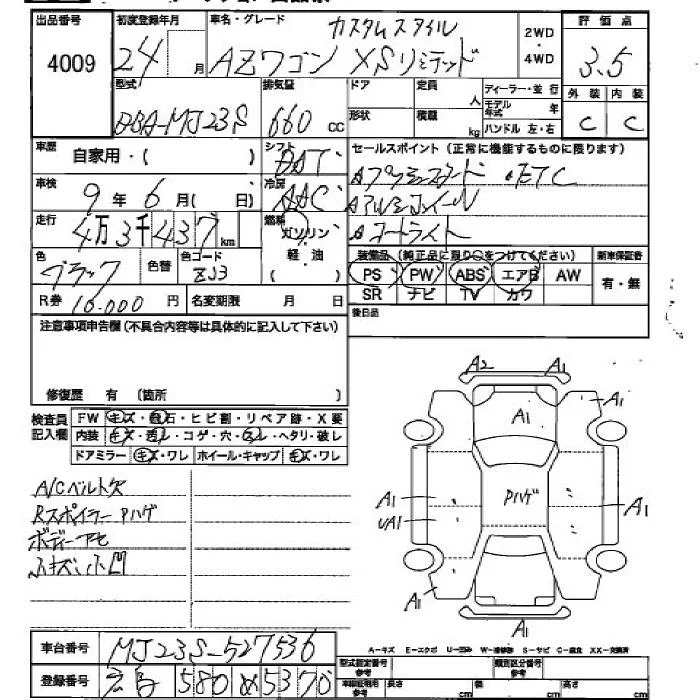 出品番号 初度登録年月 車名・グレード カスタムスタイル 2WD 評価点
4009 24 月 AZワゴン XSリミテッド ・ 4WD 3.5
型式 排気量 ドア 定員 人 ディーラー・並行 外装 内装
DBA-MJ23S 660 cc 形状 積載 kg モデル年式 年 C C
ハンドル 左・右
車歴 自家用・( ) シフト セールスポイント(正常に機能するものに限ります)
DAT Aプッシュスタート ・ETC
車検 9年 6月( 日) 冷房 AAC Aアルミホイール
走行 4万3千437km 燃料 ガソリン Aオートライト
軽・油
( )
色 ブラック 色替 色コード ZJ3 装備品(純正品に限り○をつけてください) 新車保証書
PS PW ABS エアB AW 有・無
SR ナビ TV カワ
R券 10.000 円 名変期限 月 日 後日品
注意事項申告欄(不具合内容等は具体的に記入して下さい)
修復歴 有 (箇所 )
検査員記入欄 FW キズ・飛石・ヒビ割・リペア跡・X要
内装 キズ・汚レ・コゲ・穴・スレ・ヘタリ・破レ
ドアミラー キズ・ワレ ホイール・キャップ キズ・ワレ
A/Cベルト欠
Rスポイラー Pハゲ
ボディーアセ
小キズ、小凹
A2
A1 A1 A1
A1 Pハゲ A1
UA1
A1 A1
A1
車台番号 MJ23S-527536
A-キズ E-エクボ U-凹み W-補修跡 S-サビ C-腐食 XX-交換済
登録番号 580 め 5370
型式指定番号 参考 類別区分番号 参考
長さ cm 幅 cm 高さ cm